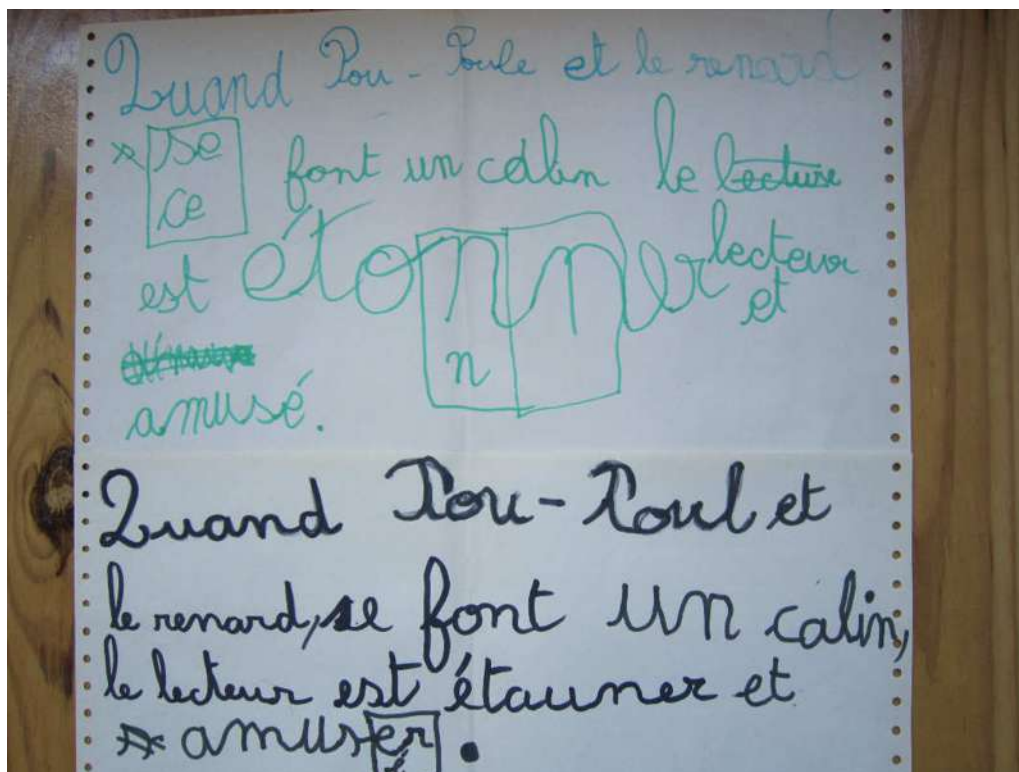 Quand Pou-Poule et le renard
se font un calin le lecture
ce
est étonner lecteur
et
n
amusé.
Quand Pou-Poul et
le renard, se font un calin,
le lecteur est étauner et
amuser.
é